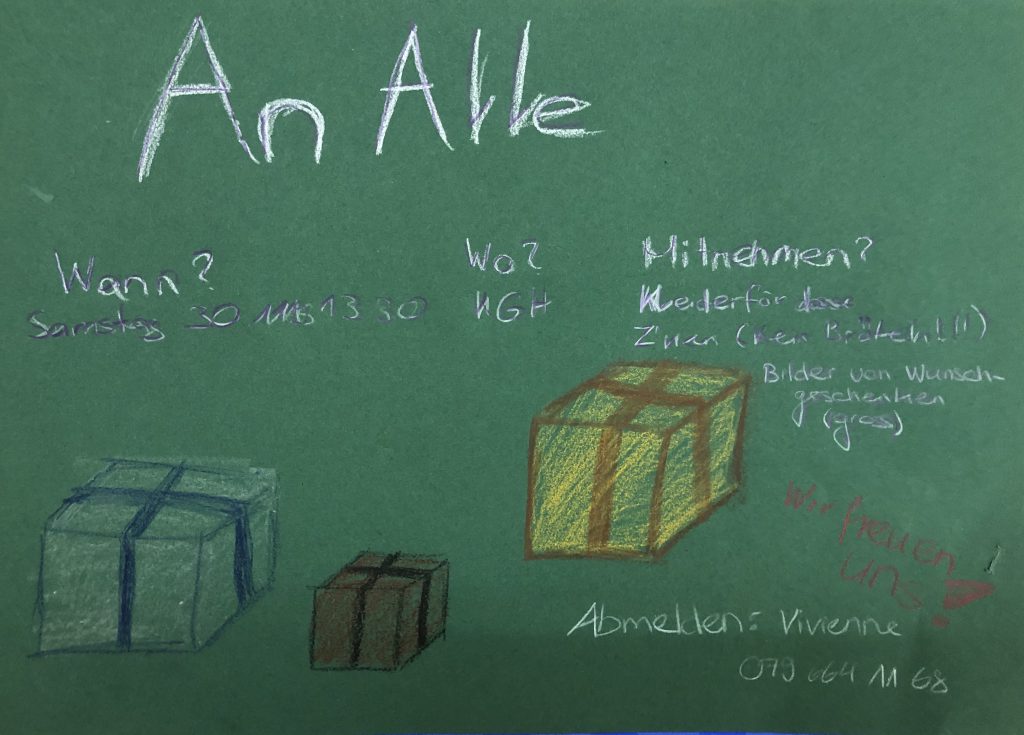 An Alle
Wann?
Samstag 30 13 30
Wo?
KGH
Mitnehmen?
Kleider för dosse
Z'vieri (Kein Brätele!!!)
Bilder von Wunsch-
geschenken
(gross)
Wir freuen
uns!
Abmelden: Vivienne
079 664 11 68